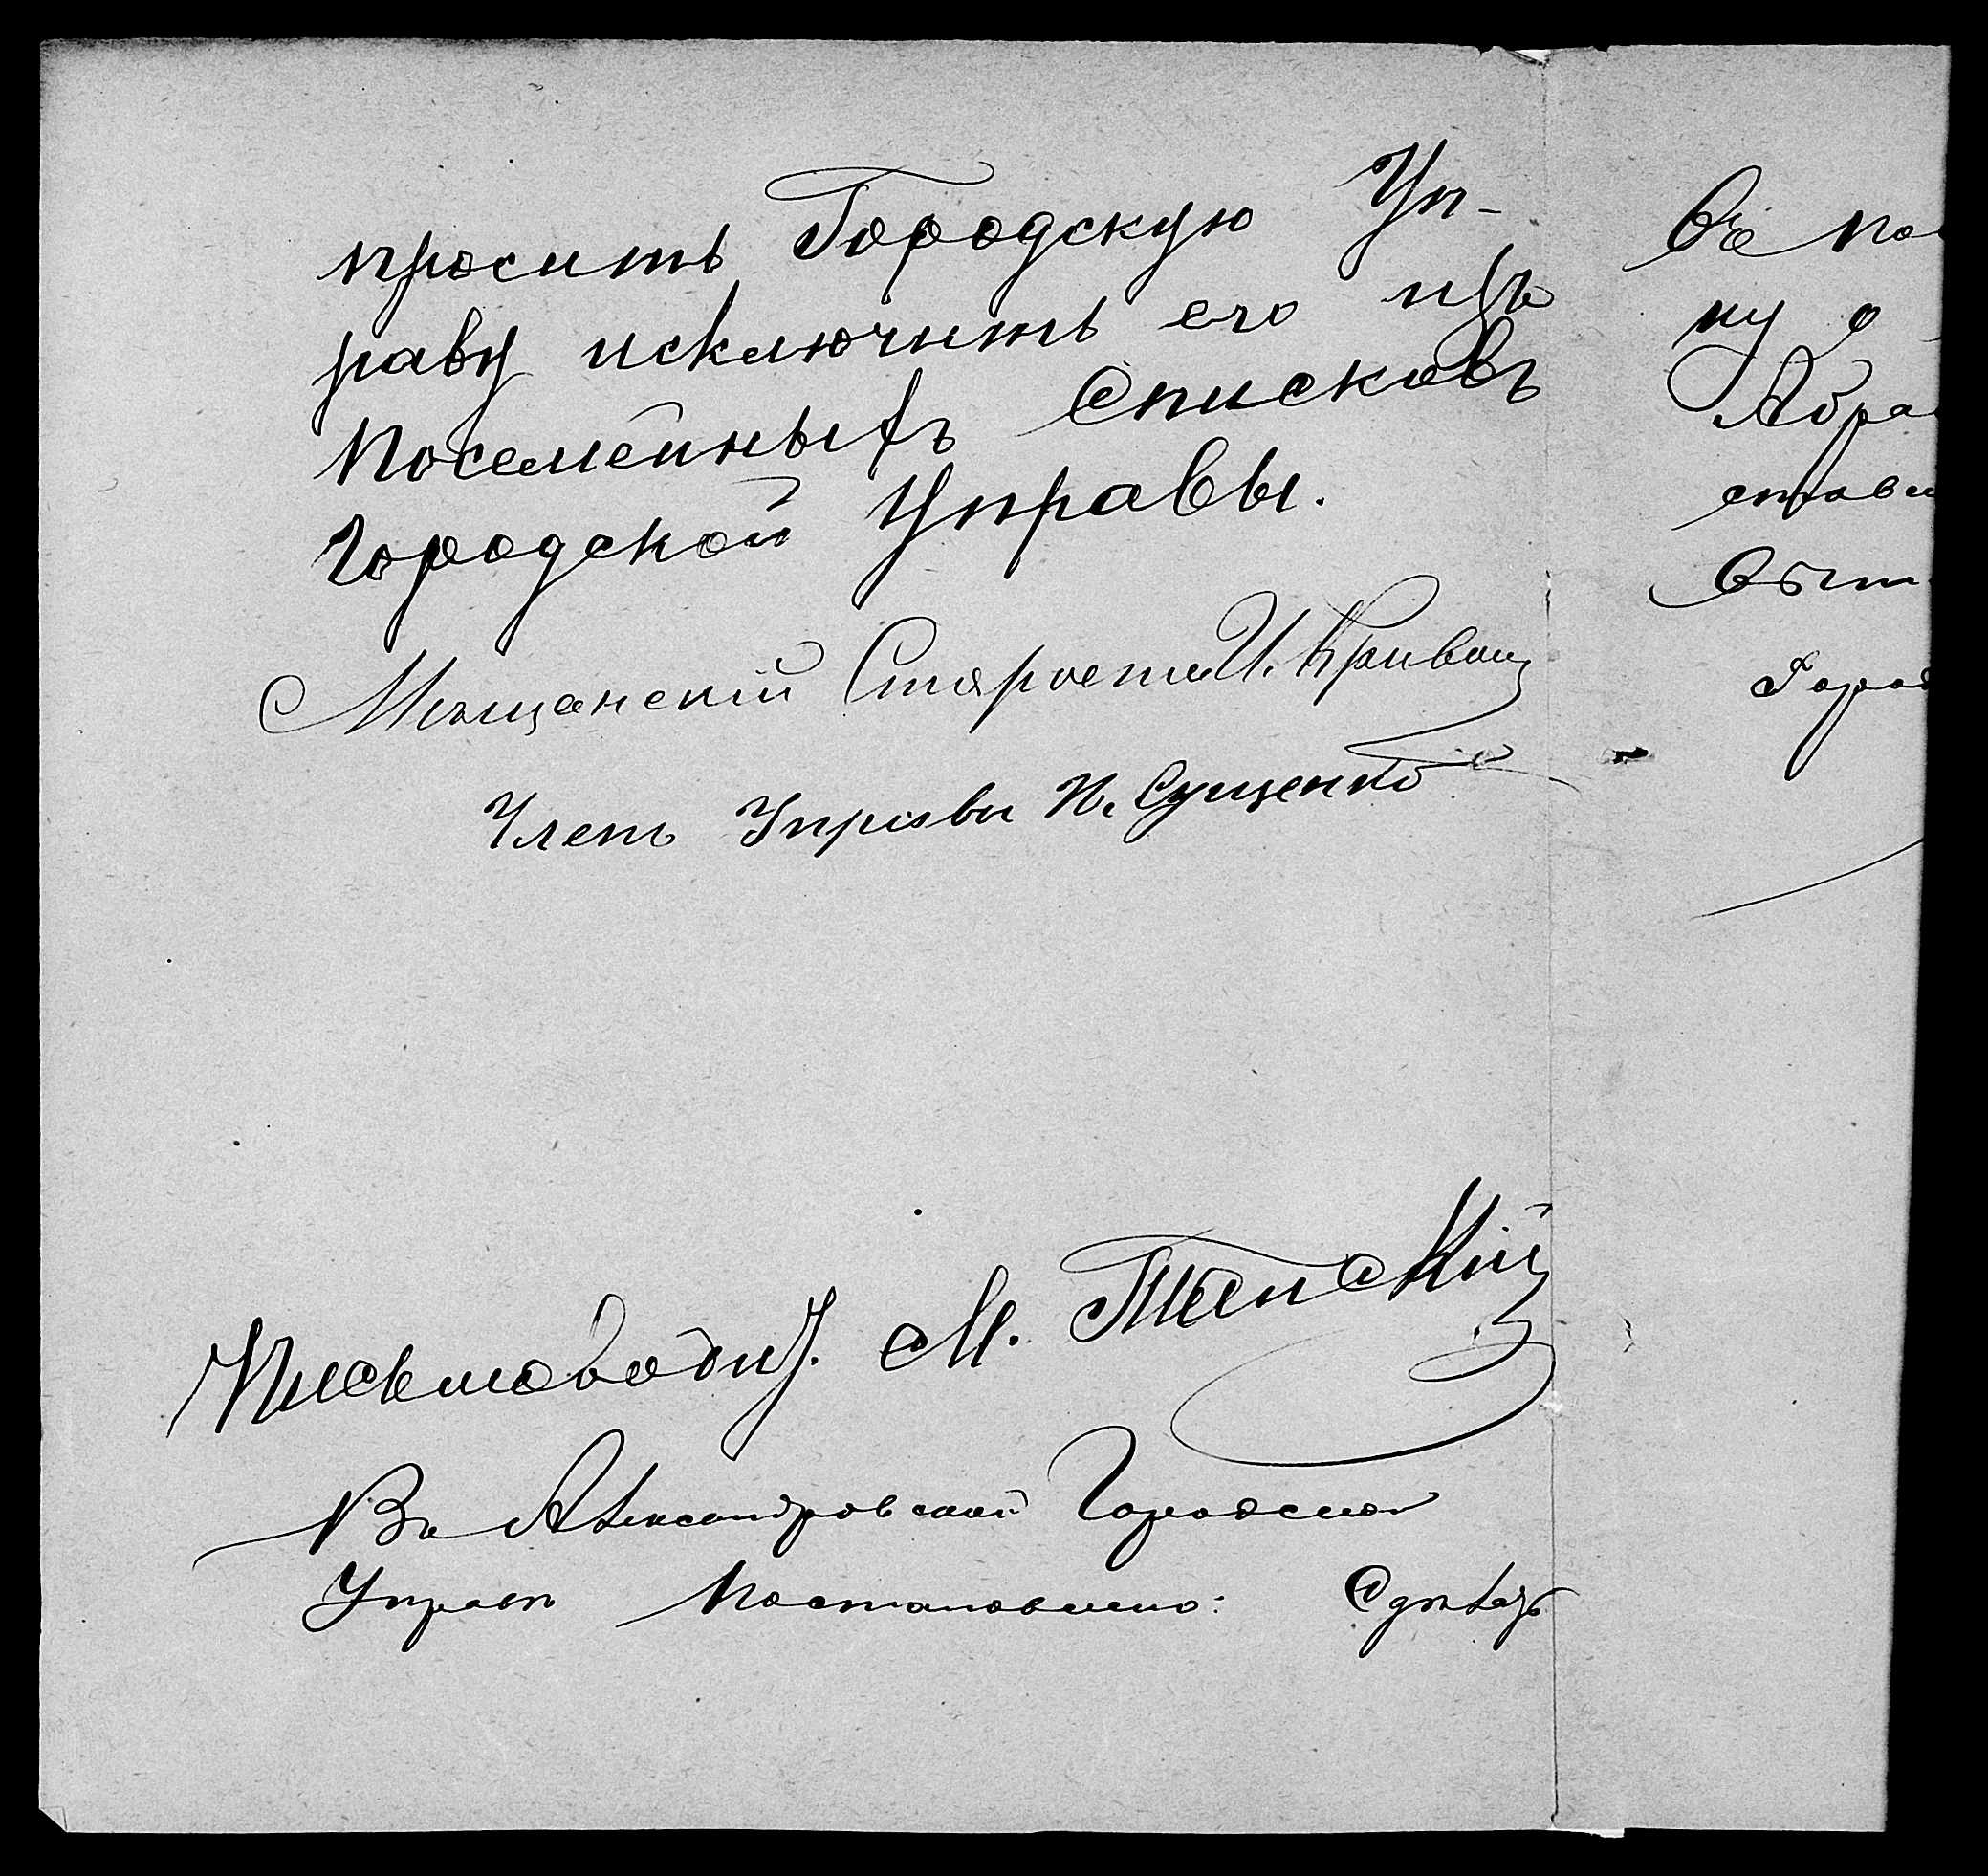 просить Городскую Уп-
раву исключить его изъ
посемейныхъ списковъ
Городской Управы.
Мѣщанскій Староста И. Кривош
Членъ Управы И. Сущенко
Письмоводит. М.
Въ Александровской Городской
Управѣ постановлено: Сдѣлать
Въ по
ну о
Абра
ставл
Город